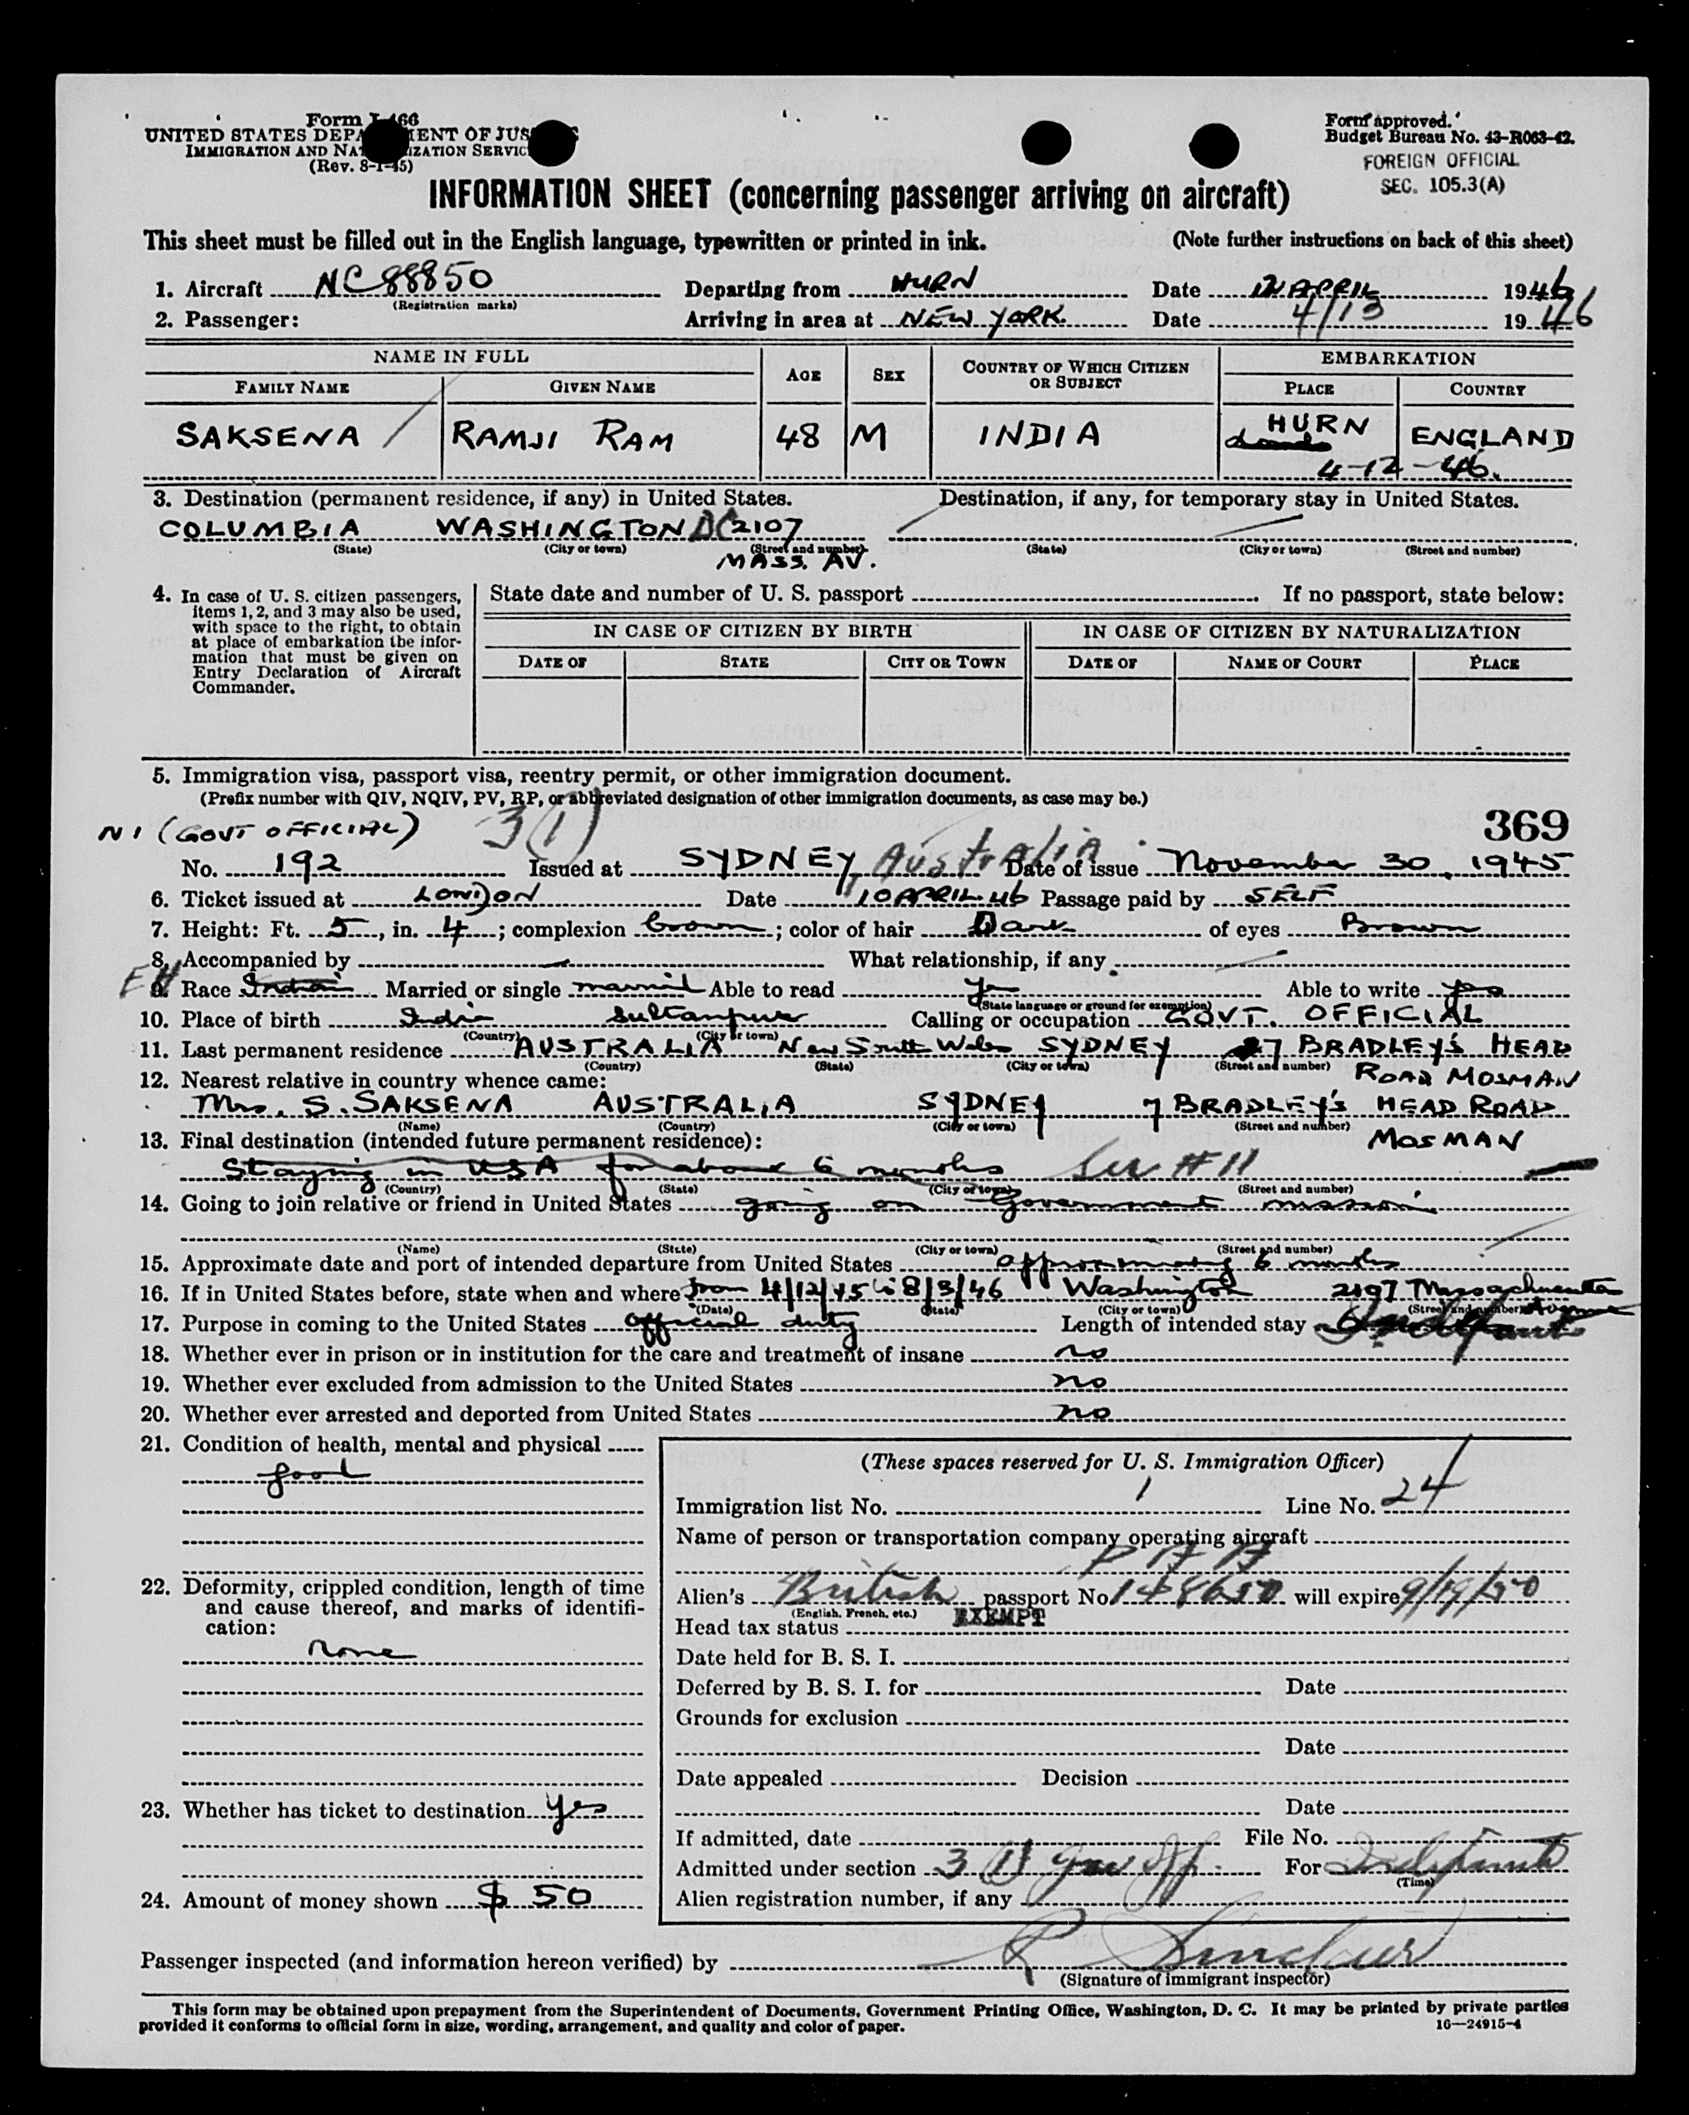 Form I-466
UNITED STATES DEPARTMENT OF JUSTICE
IMMIGRATION AND NATURALIZATION SERVICE
(Rev. 8-1-45)
Form approved.
Budget Bureau No. 43-R063-42.
FOREIGN OFFICIAL
SEC. 105.3(A)
INFORMATION SHEET (concerning passenger arriving on aircraft)
This sheet must be filled out in the English language, typewritten or printed in ink. (Note further instructions on back of this sheet)
1. Aircraft NC 88850 Departing from HURN Date 12 APRIL 1946
(Registration marks)
2. Passenger: Arriving in area at NEW YORK Date 4/13 1946
NAME IN FULL AGE SEX COUNTRY OF WHICH CITIZEN OR SUBJECT EMBARKATION
FAMILY NAME GIVEN NAME PLACE COUNTRY
SAKSENA / RAMJI RAM 48 M INDIA HURN ENGLAND
4-12-46.
3. Destination (permanent residence, if any) in United States. Destination, if any, for temporary stay in United States.
COLUMBIA WASHINGTON DC 2107
(State) (City or town) (Street and number) (State) (City or town) (Street and number)
MASS. AV.
4. In case of U. S. citizen passengers, items 1, 2, and 3 may also be used, with space to the right, to obtain at place of embarkation the information that must be given on Entry Declaration of Aircraft Commander.
State date and number of U. S. passport If no passport, state below:
IN CASE OF CITIZEN BY BIRTH IN CASE OF CITIZEN BY NATURALIZATION
DATE OF STATE CITY OR TOWN DATE OF NAME OF COURT PLACE
5. Immigration visa, passport visa, reentry permit, or other immigration document.
(Prefix number with QIV, NQIV, PV, RP, or abbreviated designation of other immigration documents, as case may be.)
369
N1 (GOVT OFFICIAL) 3(1)
No. 192 Issued at SYDNEY, Australia Date of issue November 30, 1945
6. Ticket issued at LONDON Date 10 APRIL 46 Passage paid by SELF
7. Height: Ft. 5, in. 4; complexion brown; color of hair Dark of eyes Brown
8. Accompanied by — What relationship, if any
EH
9. Race Indian Married or single married Able to read yes Able to write yes
(State language or ground for exemption)
10. Place of birth India Sultanpur Calling or occupation GOVT. OFFICIAL
(Country) (City or town)
11. Last permanent residence AUSTRALIA New South Wales SYDNEY 7 BRADLEY'S HEAD
(Country) (State) (City or town) (Street and number) ROAD MOSMAN
12. Nearest relative in country whence came:
Mrs. S. SAKSENA AUSTRALIA SYDNEY 7 BRADLEY'S HEAD ROAD
(Name) (Country) (City or town) (Street and number) MOSMAN
13. Final destination (intended future permanent residence):
Staying in USA for about 6 months See #11
(Country) (State) (City or town) (Street and number)
14. Going to join relative or friend in United States going on Government mission
(Name) (State) (City or town) (Street and number)
15. Approximate date and port of intended departure from United States approximately 6 months
16. If in United States before, state when and where from 4/12/45 to 8/3/46 Washington 2107 Massachusetts
(Date) (State) (City or town) (Street and number) Avenue
17. Purpose in coming to the United States official duty Length of intended stay Indefinite
18. Whether ever in prison or in institution for the care and treatment of insane no
19. Whether ever excluded from admission to the United States no
20. Whether ever arrested and deported from United States no
21. Condition of health, mental and physical
good
22. Deformity, crippled condition, length of time and cause thereof, and marks of identification:
none
23. Whether has ticket to destination yes
24. Amount of money shown $ 50
(These spaces reserved for U. S. Immigration Officer)
Immigration list No. 1 Line No. 24
Name of person or transportation company operating aircraft
P A A
Alien's British passport No. 148650 will expire 9/19/50
(English, French, etc.)
Head tax status EXEMPT
Date held for B. S. I.
Deferred by B. S. I. for Date
Grounds for exclusion
Date
Date appealed Decision
Date
If admitted, date File No.
Admitted under section 3(1) Gov Off. For Indefinite
(Time)
Alien registration number, if any
Passenger inspected (and information hereon verified) by R Sinclair
(Signature of immigrant inspector)
This form may be obtained upon prepayment from the Superintendent of Documents, Government Printing Office, Washington, D. C. It may be printed by private parties
provided it conforms to official form in size, wording, arrangement, and quality and color of paper. 16—24915-4